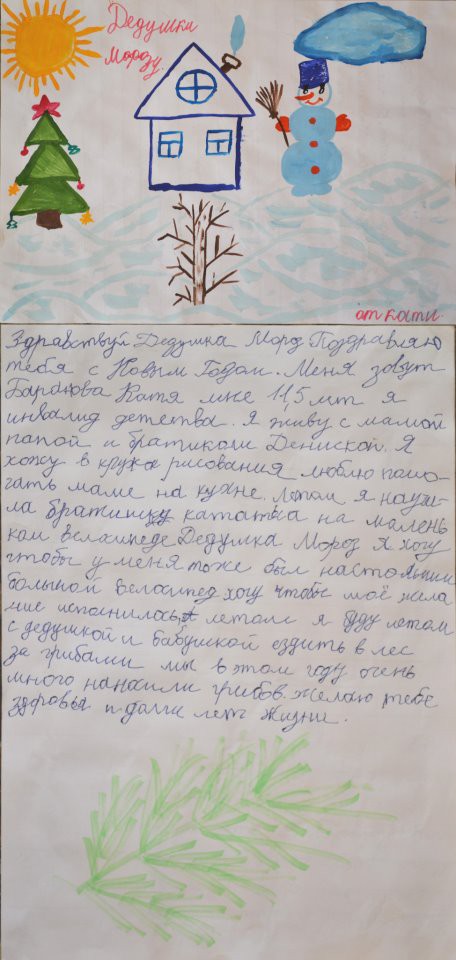 Дедушке
Морозу.
от Кати.
Здравствуй Дедушка Мороз Поздравляю
тебя с Новым Годом. Меня зовут
Баранова Катя мне 11,5 лет я
инвалид детства. Я живу с мамой
папой и братиком Дениской. Я
хожу в кружок рисования люблю помо-
гать маме на кухне. Летом я научи-
ла братишку кататься на малень
ком велосипеде Дедушка Мороз я хочу
чтобы у меня тоже был настоящий
большой велосипед хочу чтобы моё жела
ние исполнилось летом я буду летом
с дедушкой и бабушкой ездить в лес
за грибами мы в этом году очень
много наносили грибов. желаю тебе
здоровья и долги леть жизни.